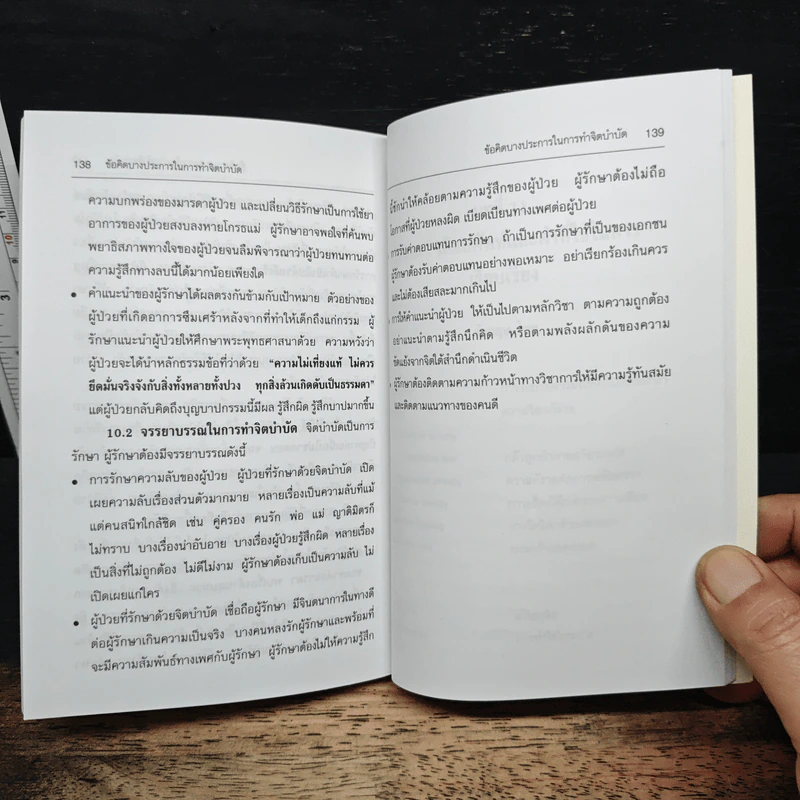 138 ข้อคิดบางประการในการทำจิตบำบัด
ความบกพร่องของมารดาผู้ป่วย และเปลี่ยนวิธีรักษาเป็นการใช้ยา
อาการของผู้ป่วยสงบลงหายโกรธแม่ ผู้รักษาอาจพอใจที่ค้นพบ
พยาธิสภาพทางใจของผู้ป่วยจนลืมพิจารณาว่าผู้ป่วยทนทานต่อ
ความรู้สึกทางลบนี้ได้มากน้อยเพียงใด
• คำแนะนำของผู้รักษาได้ผลตรงกันข้ามกับเป้าหมาย ตัวอย่างของ
ผู้ป่วยที่เกิดอาการซึมเศร้าหลังจากที่ทำให้เด็กถึงแก่กรรม ผู้
รักษาแนะนำผู้ป่วยให้ศึกษาพระพุทธศาสนาด้วย ความหวังว่า
ผู้ป่วยจะได้นำหลักธรรมข้อที่ว่าด้วย “ความไม่เที่ยงแท้ ไม่ควร
ยึดมั่นจริงจังกับสิ่งทั้งหลายทั้งปวง ทุกสิ่งล้วนเกิดดับเป็นธรรมดา”
แต่ผู้ป่วยกลับคิดถึงบุญบาปกรรมนี้มีผล รู้สึกผิด รู้สึกบาปมากขึ้น
10.2 จรรยาบรรณในการทำจิตบำบัด จิตบำบัดเป็นการ
รักษา ผู้รักษาต้องมีจรรยาบรรณดังนี้
• การรักษาความลับของผู้ป่วย ผู้ป่วยที่รักษาด้วยจิตบำบัด เปิด
เผยความลับเรื่องส่วนตัวมากมาย หลายเรื่องเป็นความลับที่แม้
แต่คนสนิทใกล้ชิด เช่น คู่ครอง คนรัก พ่อ แม่ ญาติมิตรก็
ไม่ทราบ บางเรื่องน่าอับอาย บางเรื่องผู้ป่วยรู้สึกผิด หลายเรื่อง
เป็นสิ่งที่ไม่ถูกต้อง ไม่ดีไม่งาม ผู้รักษาต้องเก็บเป็นความลับ ไม่
เปิดเผยแก่ใคร
• ผู้ป่วยที่รักษาด้วยจิตบำบัด เชื่อถือผู้รักษา มีจินตนาการในทางดี
ต่อผู้รักษาเกินความเป็นจริง บางคนหลงรักผู้รักษาและพร้อมที่
จะมีความสัมพันธ์ทางเพศกับผู้รักษา ผู้รักษาต้องไม่ให้ความรู้สึก
ข้อคิดบางประการในการทำจิตบำบัด 139
นี้ชักนำให้คล้อยตามความรู้สึกของผู้ป่วย ผู้รักษาต้องไม่ถือ
โอกาสที่ผู้ป่วยหลงผิด เบียดเบียนทางเพศต่อผู้ป่วย
การรับค่าตอบแทนการรักษา ถ้าเป็นการรักษาที่เป็นของเอกชน
ผู้รักษาต้องรับค่าตอบแทนอย่างพอเหมาะ อย่าเรียกร้องเกินควร
และไม่ต้องเสียสละมากเกินไป
การให้คำแนะนำผู้ป่วย ให้เป็นไปตามหลักวิชา ตามความถูกต้อง
อย่าแนะนำตามรู้สึกนึกคิด หรือตามพลังผลักดันของความ
ขัดแย้งจากจิตใต้สำนึกดำเนินชีวิต
• ผู้รักษาต้องติดตามความก้าวหน้าทางวิชาการให้มีความรู้ทันสมัย
และติดตามแนวทางของคนดี